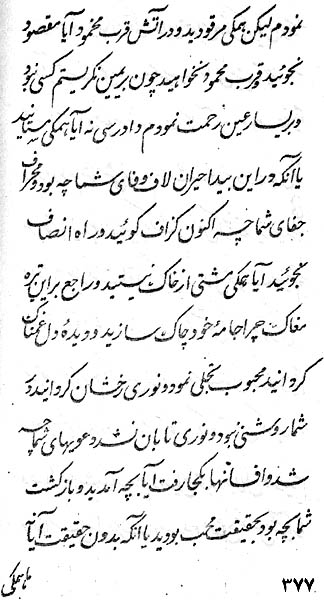 نمودم لیکن همکی مرقود بدو در آتش قرب محمود آیا مقصود
نجوئید و قرب محمود نخواهید چون بر یمین نکریستم کسی نبود
و بر یسار عین رحمت نمودم دادرسی نه آیا همکی مستانید
یا آنکه در این بیدا حیران لاف وفای شما چه بود و
جفای شما چه اکنون کزاف کوئید و راه انصاف
نجوئید آیا همکی مشتی از خاک نیستید و راجع بر این تیره
مغاک چرا جامهٔ خود چاک سازید و دیدهٔ دل غمناک
کردانید محبوب تجلی نمود و نوری رخشان کردانید در
شما روشنی نبود و نوری تابان نشد دعویهای شما چه
شد و افانها بکجا رفت آیا بچه آمدید و بازکشت
شما بچه بود بحقیقت محب بودید یا آنکه بدون حقیقت آیا نه
ما همکی
۳۷۷